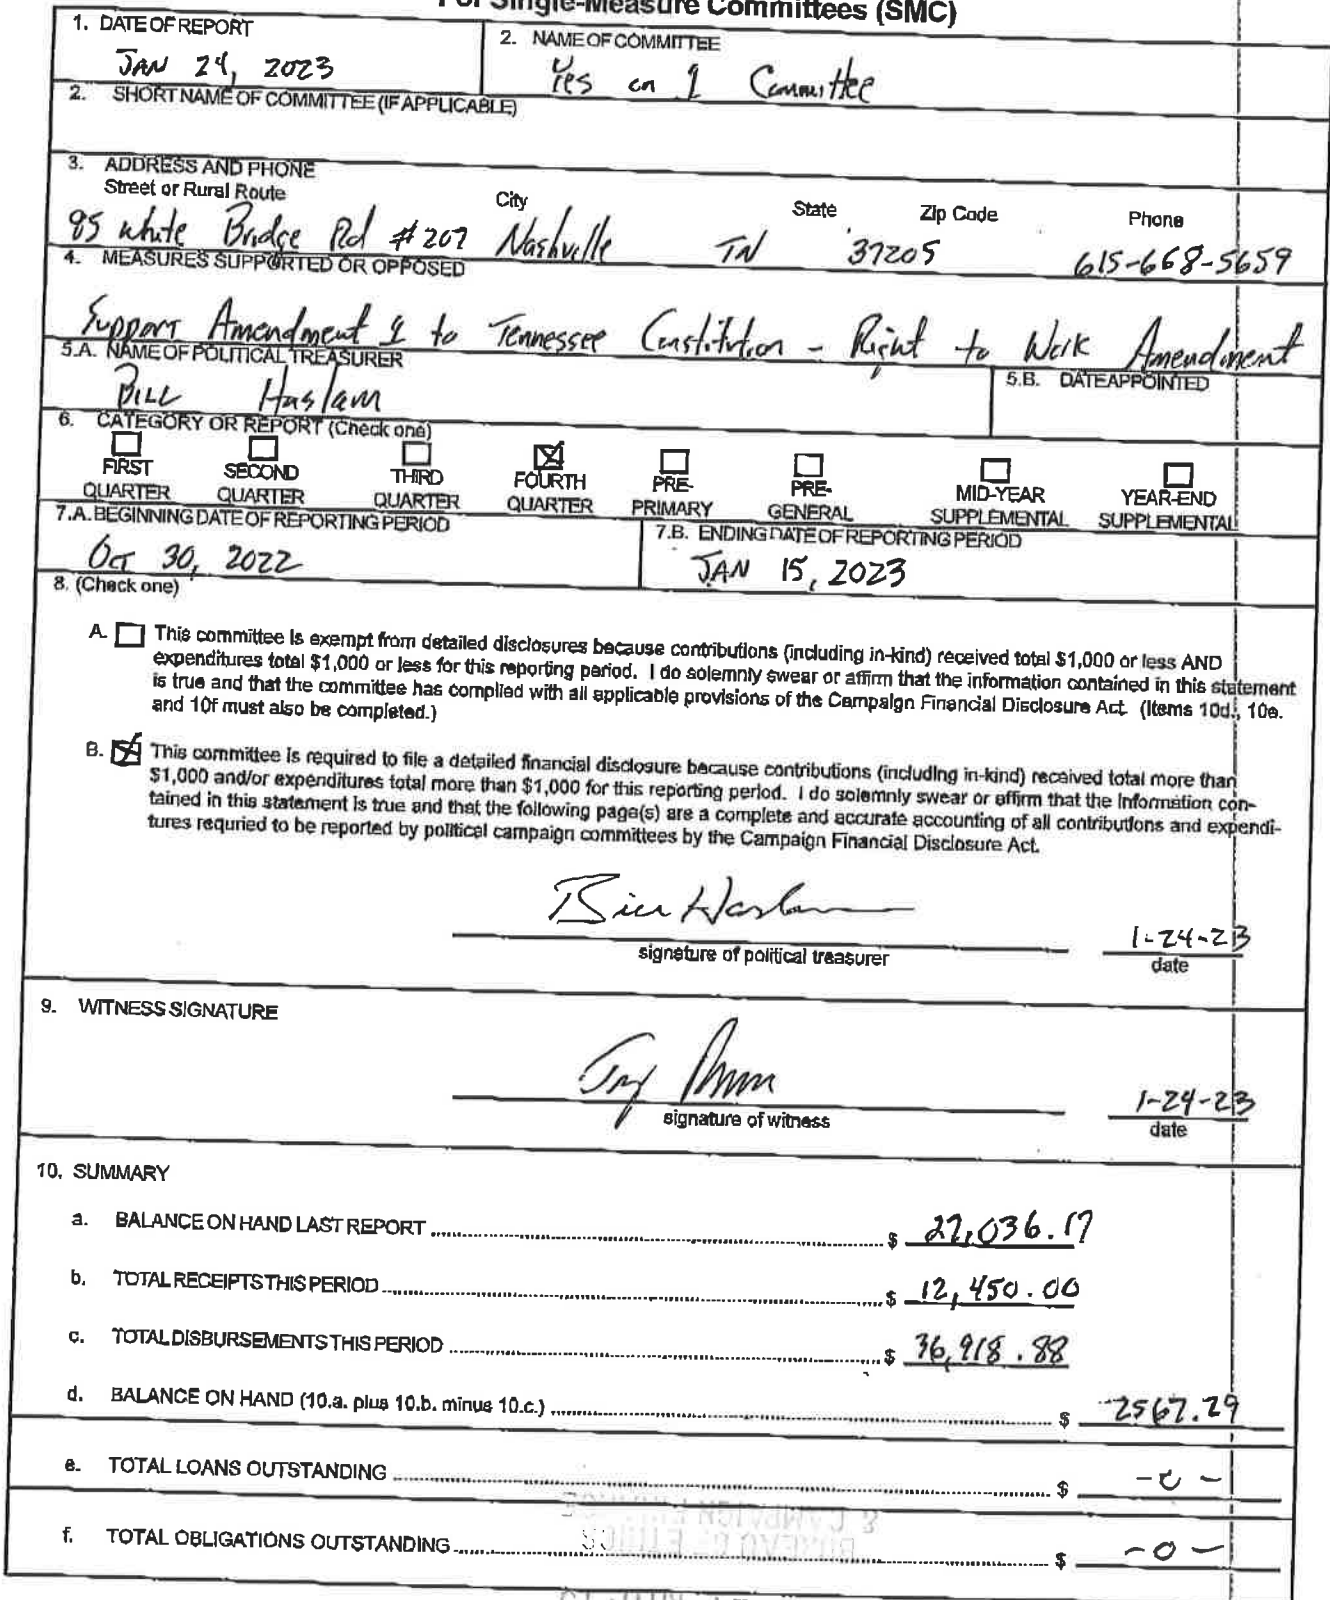 For Single-Measure Committees (SMC)
1. DATE OF REPORT
JAN 24, 2023
2. NAME OF COMMITTEE
Yes on 1 Committee
2. SHORT NAME OF COMMITTEE (IF APPLICABLE)
3. ADDRESS AND PHONE
Street or Rural Route City State Zip Code Phone
95 White Bridge Rd #207 Nashville TN 37205 615-668-5659
4. MEASURES SUPPORTED OR OPPOSED
Support Amendment 1 to Tennessee Constitution - Right to Work Amendment
5.A. NAME OF POLITICAL TREASURER
Bill Haslam
5.B. DATE APPOINTED
6. CATEGORY OR REPORT (Check one)
FIRST QUARTER
SECOND QUARTER
THIRD QUARTER
FOURTH QUARTER
PRE-PRIMARY
PRE-GENERAL
MID-YEAR SUPPLEMENTAL
YEAR-END SUPPLEMENTAL
7.A. BEGINNING DATE OF REPORTING PERIOD
Oct 30, 2022
7.B. ENDING DATE OF REPORTING PERIOD
JAN 15, 2023
8. (Check one)
A. This committee is exempt from detailed disclosures because contributions (including in-kind) received total $1,000 or less AND
expenditures total $1,000 or less for this reporting period. I do solemnly swear or affirm that the information contained in this statement
is true and that the committee has complied with all applicable provisions of the Campaign Financial Disclosure Act. (Items 10d., 10e.
and 10f must also be completed.)
B. This committee is required to file a detailed financial disclosure because contributions (including in-kind) received total more than
$1,000 and/or expenditures total more than $1,000 for this reporting period. I do solemnly swear or affirm that the information con-
tained in this statement is true and that the following page(s) are a complete and accurate accounting of all contributions and expendi-
tures requried to be reported by political campaign committees by the Campaign Financial Disclosure Act.
Bill Haslam
signature of political treasurer
1-24-23
date
9. WITNESS SIGNATURE
signature of witness
1-24-23
date
10. SUMMARY
a. BALANCE ON HAND LAST REPORT $ 27,036.17
b. TOTAL RECEIPTS THIS PERIOD $ 12,450.00
c. TOTAL DISBURSEMENTS THIS PERIOD $ 36,918.88
d. BALANCE ON HAND (10.a. plus 10.b. minus 10.c.) $ 2567.29
e. TOTAL LOANS OUTSTANDING $ -0-
f. TOTAL OBLIGATIONS OUTSTANDING $ -0-